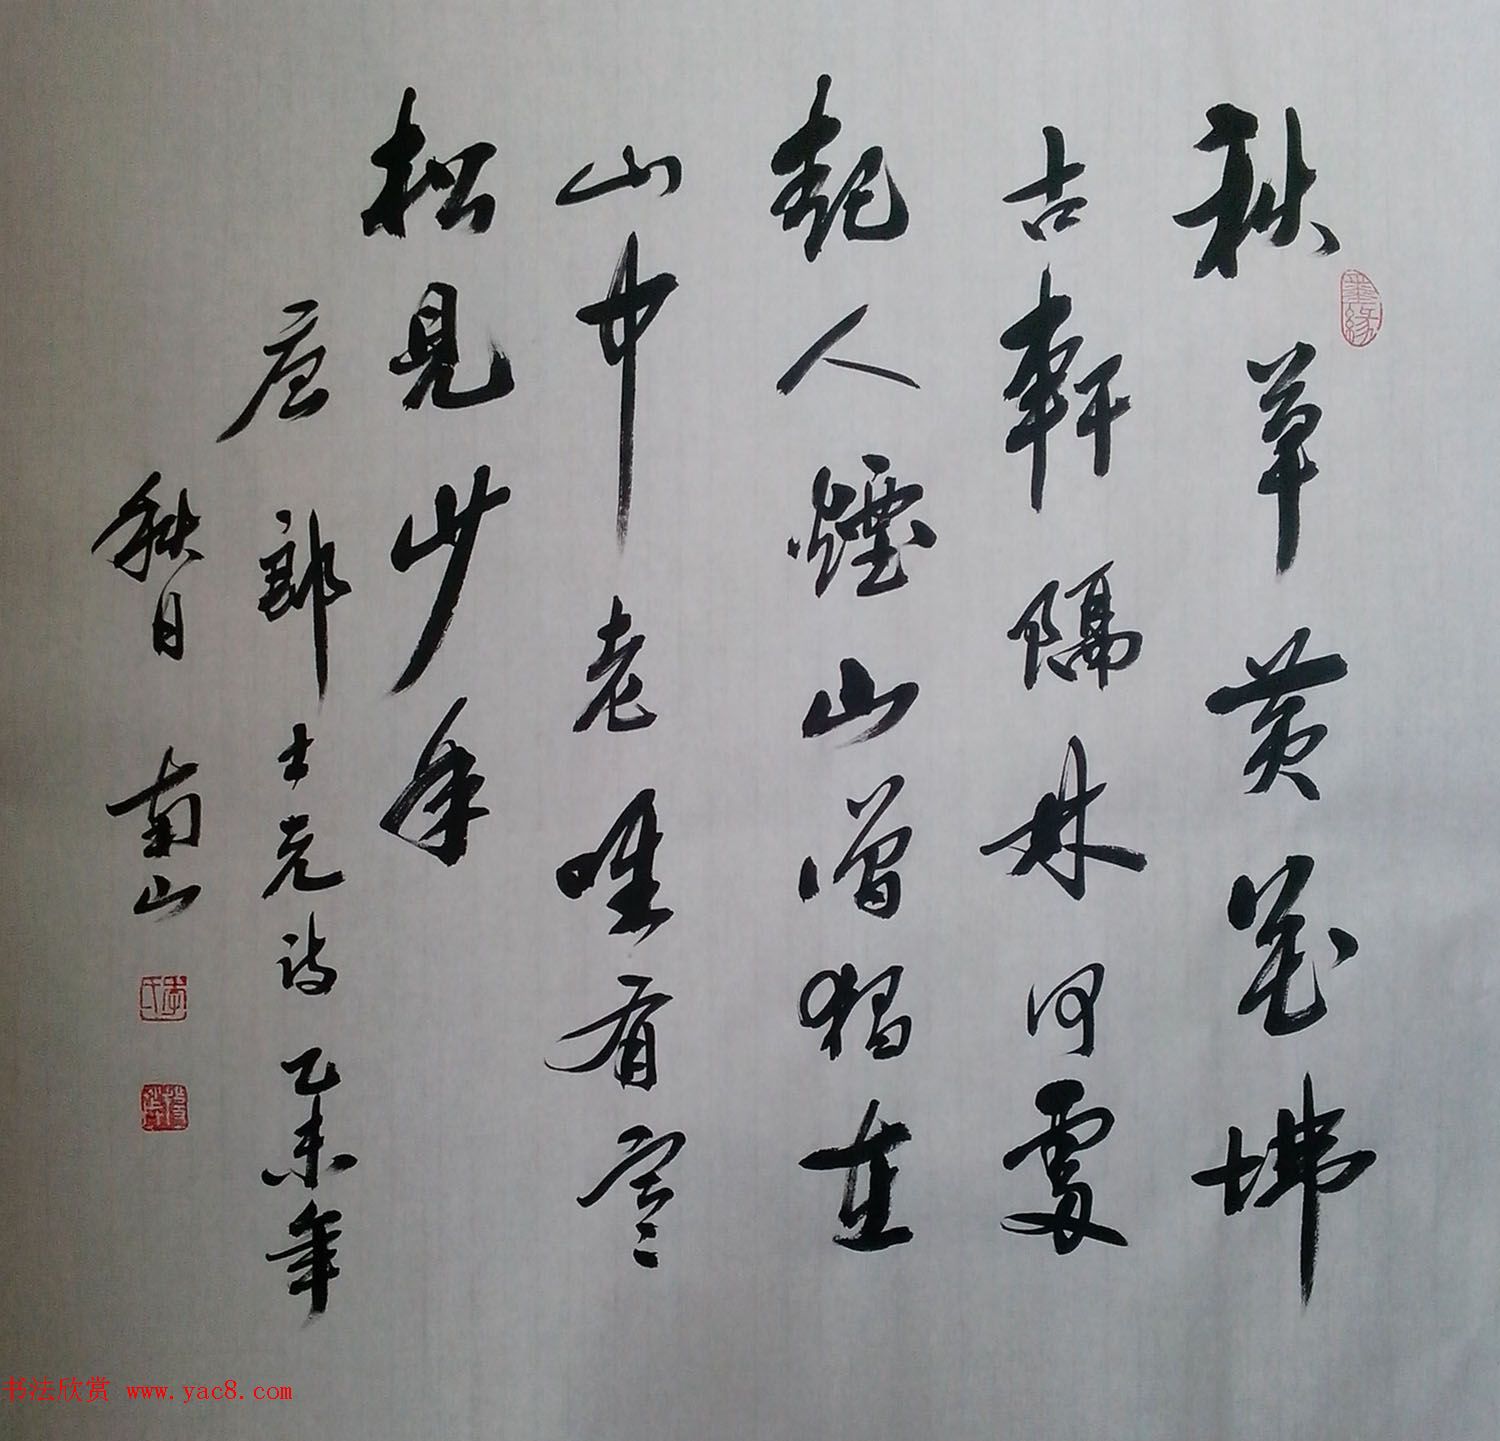 秋草黄花拂
古軒隔林何處
起人煙山僧獨在
山中老唯有寒
松見少年
唐郎士元詩乙未年
秋日南山
墨緣
李氏
书法欣赏 www.yac8.com